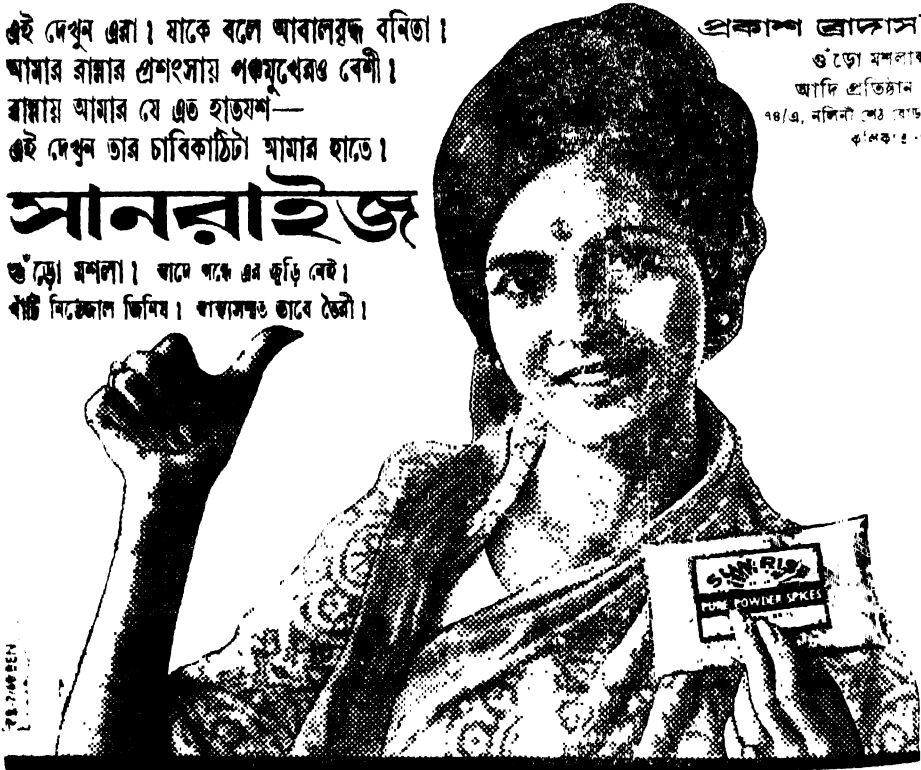 এই দেখুন এরা। যাকে বলে আবালবৃদ্ধ বনিতা।
আমার রান্নার প্রশংসায় পঞ্চমুখেরও বেশী।
রান্নায় আমার যে এত হাতযশ—
এই দেখুন তার চাবিকাঠিটা আমার হাতে।
সানরাইজ
গুঁড়ো মশলা। স্বাদে গন্ধে এর জুড়ি নেই।
খাঁটি নির্ভেজাল জিনিষ। স্বাস্থ্যসম্মত ভাবে তৈরী।
প্রকাশ ব্রাদার্স
গুঁড়ো মশলার
আদি প্রতিষ্ঠান
৭৪/এ, নলিনী শেঠ রোড
SUN-RISE
PURE POWDER SPICES